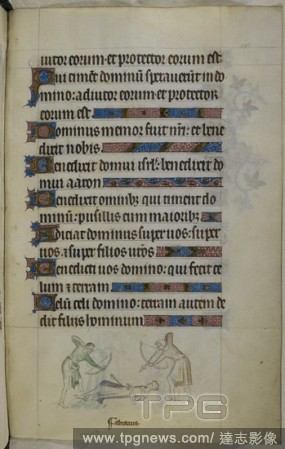 iutor eorum et protector eorum est.
Qui timēt dominū speraverūt in do
mino: adiutor eorum et protector
eorum est
Dominus memor fuit nr̄i: et bene
dixit nobis
Benedixit domui isrl̄: benedixit do
mui aaron
Benedixit omnibz qui timent do
minū: pusillis cum maioribz
Adiciat dominus super vos: super
vos ⁊ super filios vr̄os
Benedicti vos domino: qui fecit ce
lum ⁊ terram
Celū celi domino: terram autem de
dit filijs hominum
TPG
www.tpgnews.com / 達志影像